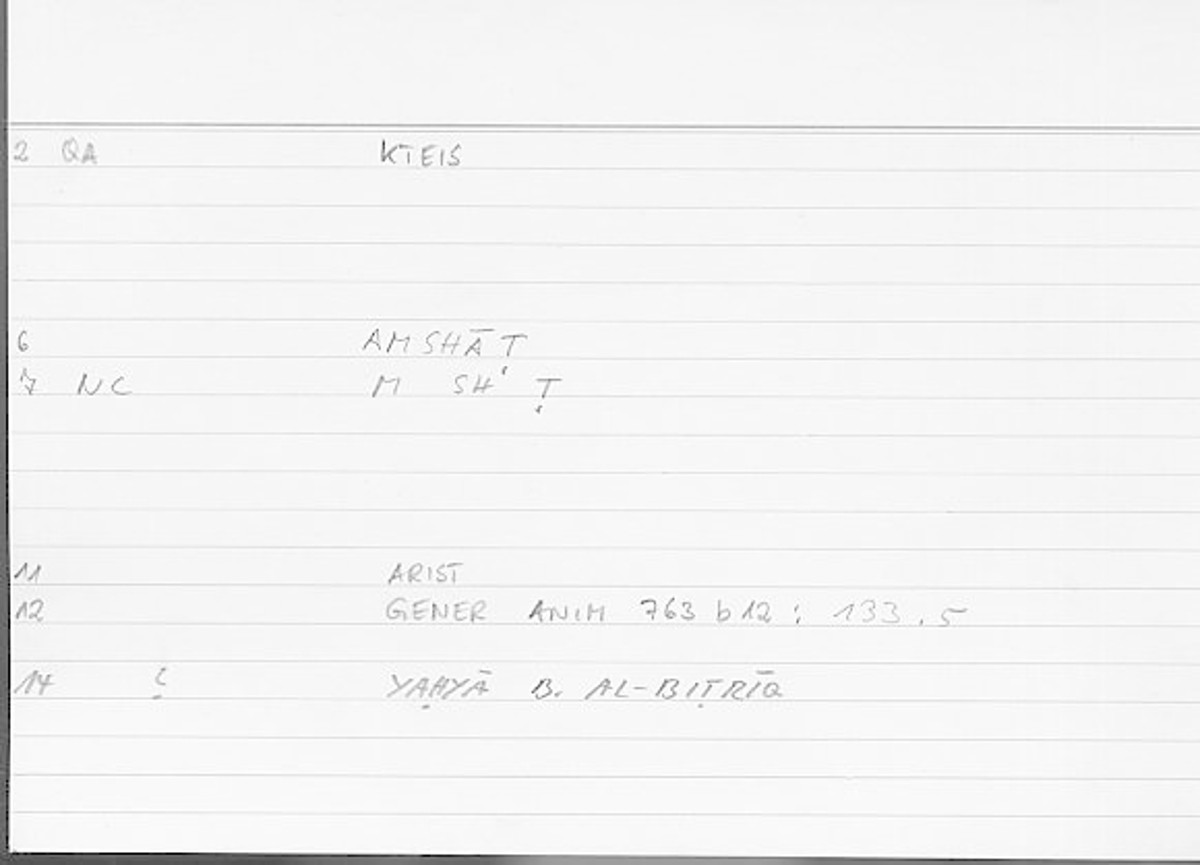 2 QA KTEIS
6 AMSHĀṬ
7 NC M SH Ṭ
11 ARIST
12 GENER ANIM 763 b 12 : 133.5
14 YAḤYĀ B. AL-BIṬRĪQ